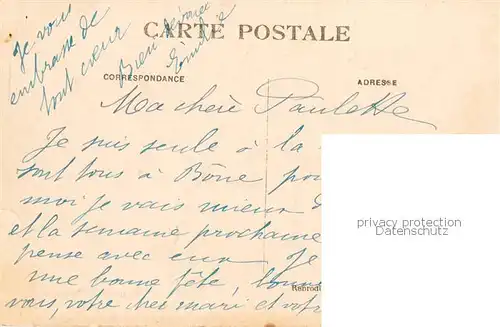 CARTE POSTALE
CORRESPONDANCE
ADRESSE
Je vous
embrasse de
tout cœur
Bien dévouée
Emilie
Ma chère Paulette
Je suis seule à la
sont tous à Bône
moi je vais mieux
et la semaine prochaine
pense avec eux Je
une bonne fête,
vous, votre cher mari et
privacy protection
Datenschutz